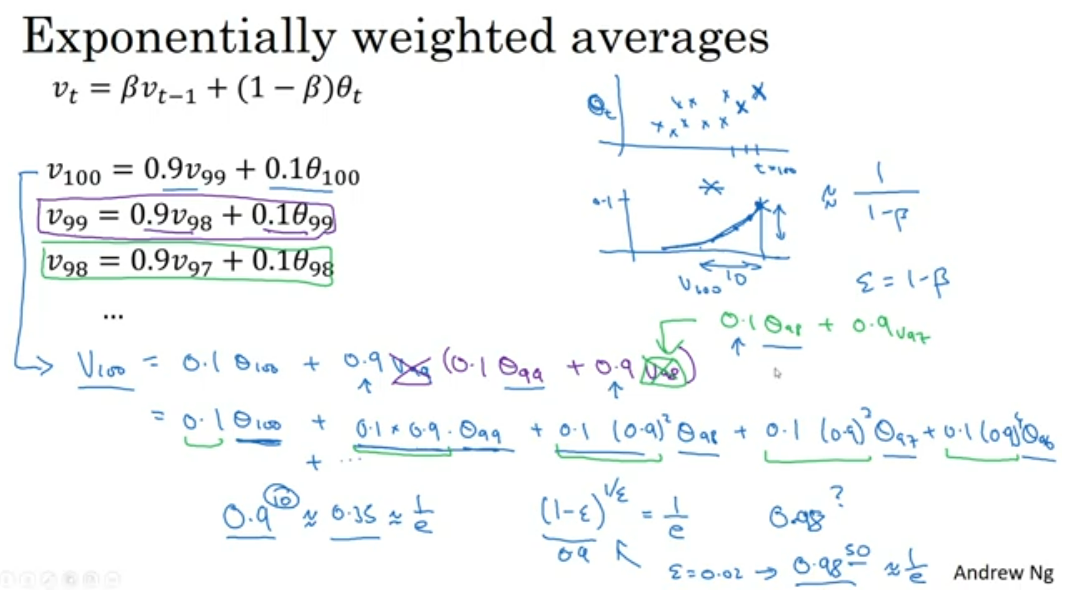 Exponentially weighted averages
vₜ = βvₜ₋₁ + (1 − β)θₜ
v₁₀₀ = 0.9v₉₉ + 0.1θ₁₀₀
v₉₉ = 0.9v₉₈ + 0.1θ₉₉
v₉₈ = 0.9v₉₇ + 0.1θ₉₈
...
θₜ
t=100
0.1
V₁₀₀ 10
≈ 1/(1-β)
ε = 1-β
0.1 θ₉₈ + 0.9 V₉₇
V₁₀₀ = 0.1 θ₁₀₀ + 0.9 V₉₉ (0.1 θ₉₉ + 0.9 V₉₈)
= 0.1 θ₁₀₀ + 0.1 × 0.9 · θ₉₉ + 0.1 (0.9)² θ₉₈ + 0.1 (0.9)³ θ₉₇ + 0.1 (0.9)⁴ θ₉₆
+ ...
0.9¹⁰ ≈ 0.35 ≈ 1/e
(1-ε)^(1/ε) = 1/e
0.9
0.98^?
ε=0.02 → 0.98⁵⁰ ≈ 1/e
Andrew Ng